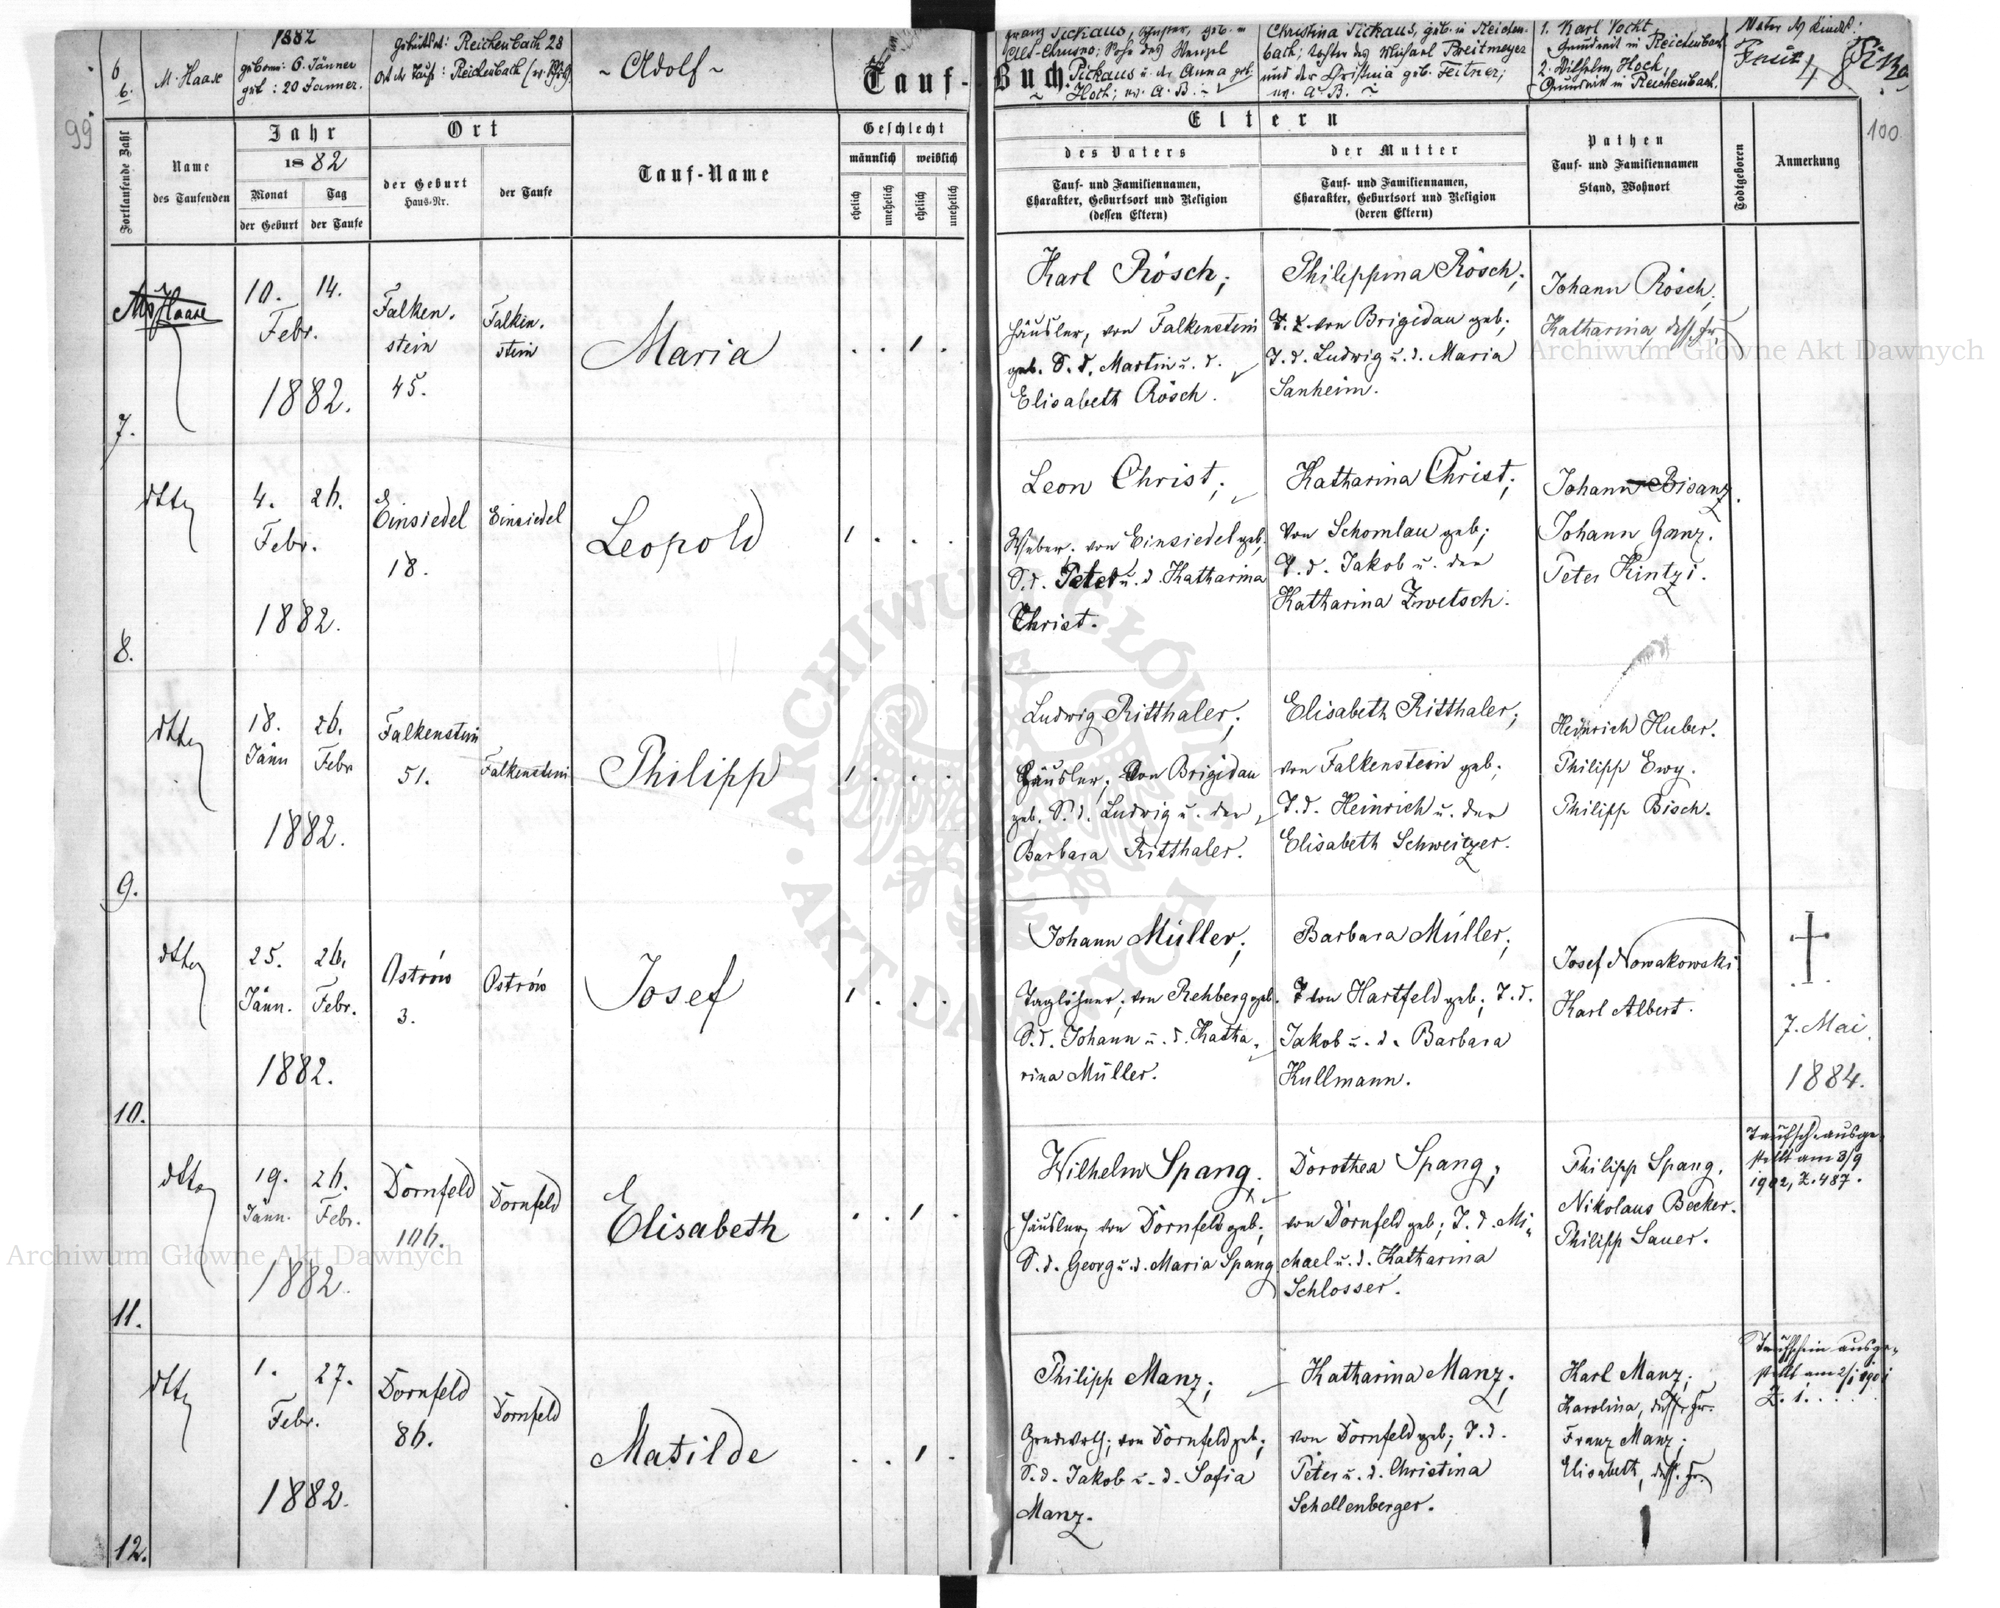 6
6.
M. Haase
1882
geboren: 6. Jänner
get: 20 Janner.
Geburtsort: Reichenbach 28
Ort der Taufe: Reichenbach
~ Adolf ~
Tauf-Buch.
Pickaus, geb. in
Sohn des Wenzel
Pickaus u. der Anna geb.
Hoch; ev. A. B.
Christina Pickaus, geb. in Reichen-
bach; Tochter des Michael Breitmeyer
und der Christina geb. Feitner;
ev. A. B.
1. Karl Vocht
Grundwirt in Reichenbach
2. Wilhelm Hock,
Grundwirt in Reichenbach.
Vater des Kindes:
48
99
100
Fortlaufende Zahl
Name
des Taufenden
Jahr
1882
Monat
der Geburt
Tag
der Taufe
Ort
der Geburt
Haus-Nr.
der Taufe
Tauf-Name
Geschlecht
männlich
weiblich
ehelich
unehelich
ehelich
unehelich
Eltern
des Vaters
Tauf- und Familiennamen,
Charakter, Geburtsort und Religion
(dessen Eltern)
der Mutter
Tauf- und Familiennamen,
Charakter, Geburtsort und Religion
(deren Eltern)
Pathen
Tauf- und Familiennamen
Stand, Wohnort
Todtgeboren
Anmerkung
7.
M. Haase
10. 14.
Febr.
1882.
Falken-
stein
45.
Falken-
stein
Maria
. . 1 .
Karl Rösch;
Häusler, von Falkenstein
geb. S. d. Martin u. d.
Elisabeth Rösch.
Philippina Rösch;
von Brigidau geb;
T. d. Ludwig u. d. Maria
Sanheim.
Johann Rösch,
Katharina, dess. Fr.
8.
dtto
4. 26.
Febr.
1882.
Einsiedel
18.
Einsiedel
Leopold
1 . . .
Leon Christ;
Weber, von Einsiedel geb;
S. d. Peter u. d. Katharina
Christ.
Katharina Christ;
von Schomlau geb;
T. d. Jakob u. der
Katharina Zwetsch.
Johann Bisanz.
Johann Ganz.
Peter Kintzi.
9.
dtto
18. 26.
Jänn Febr
1882.
Falkenstein
51.
Falkenstein
Philipp
1 . . .
Ludwig Ritthaler;
Häusler, von Brigidau
geb. S. d. Ludwig u. der
Barbara Ritthaler.
Elisabeth Ritthaler;
von Falkenstein geb;
T. d. Heinrich u. der
Elisabeth Schweitzer.
Heinrich Huber.
Philipp Ewy.
Philipp Bisch.
10.
dtto
25. 26.
Jänn. Febr.
1882.
Ostrów
3.
Ostrów
Josef
1 . . .
Johann Müller;
Taglöhner, von Rehberg geb.
S. d. Johann u. d. Katha-
rina Müller.
Barbara Müller;
von Hartfeld geb; T. d.
Jakob u. d. Barbara
Kullmann.
Josef Nowakowski
Karl Albert.
7. Mai
1884.
11.
dtto
19. 26.
Jänn. Febr.
1882.
Dornfeld
106.
Dornfeld
Elisabeth
. . 1 .
Wilhelm Spang,
Häusler, von Dornfeld geb;
S. d. Georg u. d. Maria Spang
Dorothea Spang,
von Dornfeld geb; T. d. Mi-
chael u. d. Katharina
Schlosser.
Philipp Spang.
Nikolaus Becker.
Philipp Sauer.
Taufsch. ausge-
stellt am 3/9
1902, Z. 487.
12.
dtto
1. 27.
Febr.
1882.
Dornfeld
86.
Dornfeld
Matilde
. . 1 .
Philipp Manz;
Grundwirth; von Dornfeld geb;
S. d. Jakob u. d. Sofia
Manz.
Katharina Manz;
von Dornfeld geb; T. d.
Peter u. d. Christina
Schellenberger.
Karl Manz;
Karolina, dess. Fr.
Franz Manz;
Elisabeth, dess. Fr.
Taufschein ausge-
stellt am
Z. 1. . . .
Archiwum Główne Akt Dawnych
Archiwum Główne Akt Dawnych
ARCHIWUM GŁÓWNE · AKT DAWNYCH ·